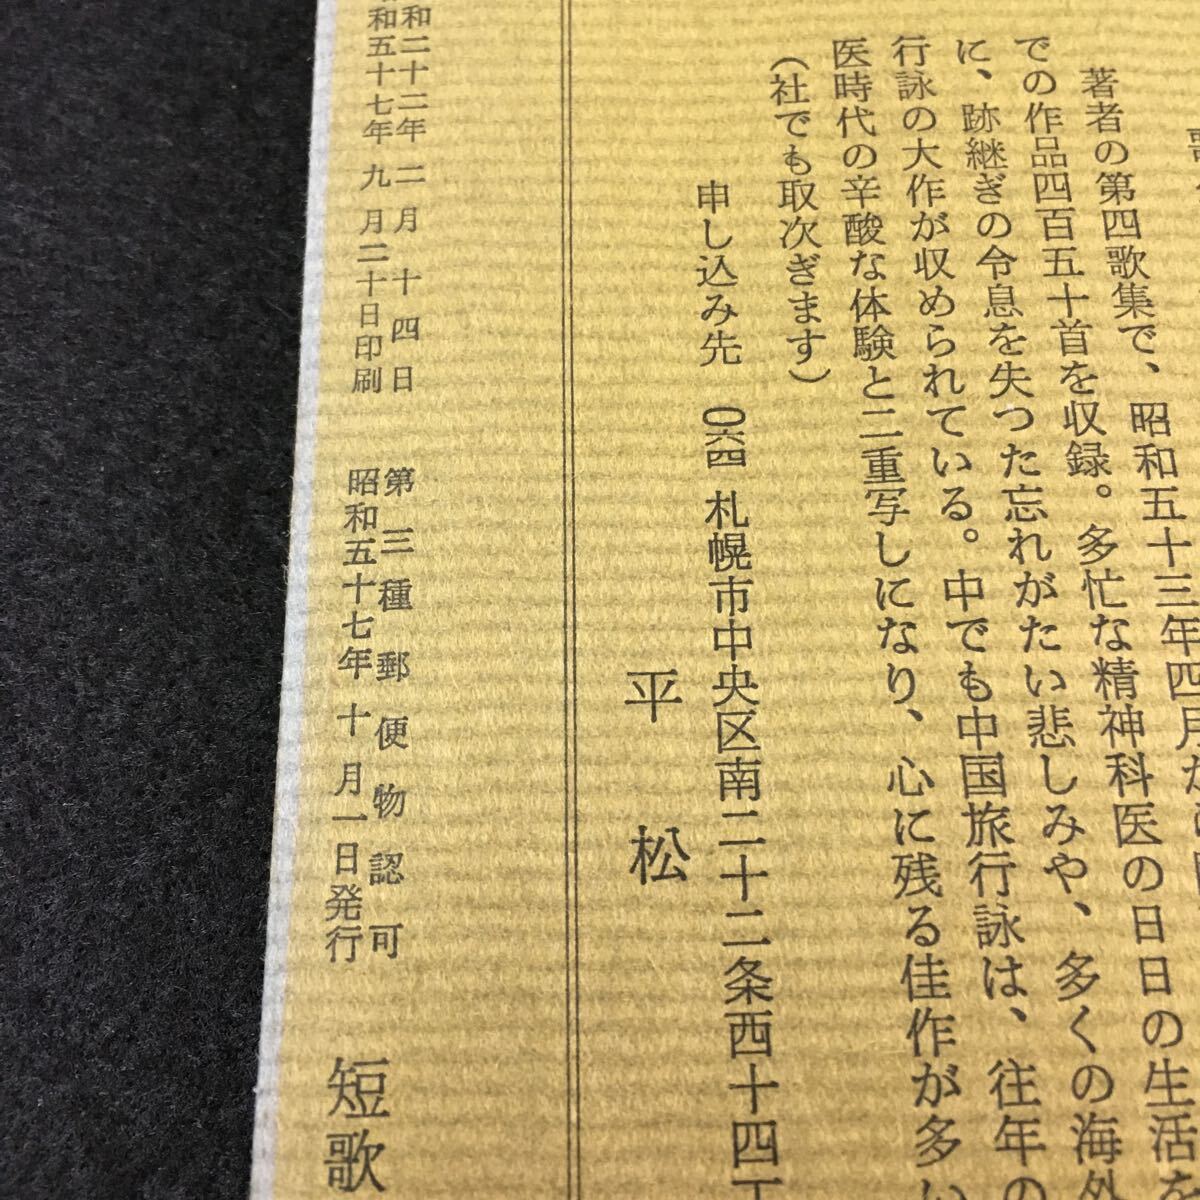 著者の第四歌集で、昭和五十三年四月か
での作品四百五十首を収録。多忙な精神科医の日日の生活を
に、跡継ぎの令息を失つた忘れがたい悲しみや、多くの海外
行詠の大作が収められている。中でも中国旅行詠は、往年の
医時代の辛酸な体験と二重写しになり、心に残る佳作が多い
（社でも取次ぎます）
申し込み先 〇六四 札幌市中央区南二十二条西十四丁
平松
和二十二年二月十四日 第三種郵便物認可
昭和五十七年九月二十日印刷 昭和五十七年十月一日発行
短歌